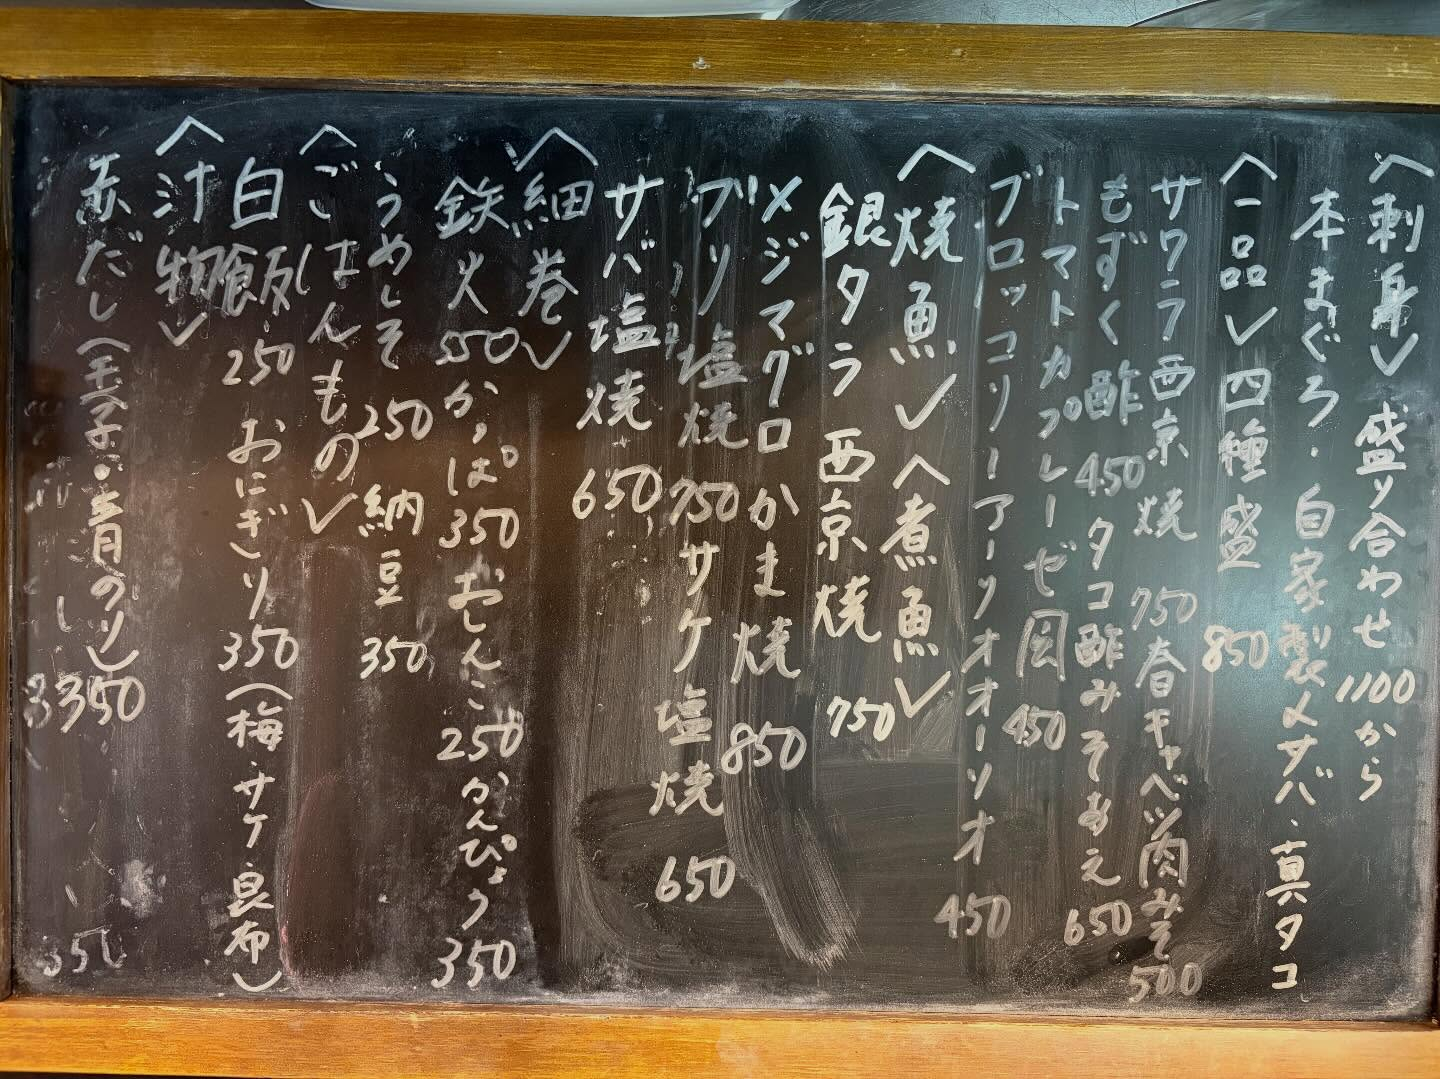 〈刺身〉盛り合わせ1100から
本まぐろ・自家製〆サバ・真タコ
〈一品〉四種盛 850
サワラ西京焼 750 春キャベツ肉みそ 500
もずく酢 450 タコ酢みそあえ 650
トマトカプレーゼ風 450
ブロッコリーアーリオオーリオ 450
〈焼魚〉〈煮魚〉
銀タラ西京焼 750
メジマグロかま焼 850
ブリ塩焼 750 サケ塩焼 650
サバ塩焼 650
〈細巻〉
鉄火 550 かっぱ 350 おしんこ 250 かんぴょう 350
うめしそ 250 納豆 350
〈ごはんもの〉
白飯 250 おにぎり 350 (梅・サケ・昆布)
〈汁物〉
赤だし(玉子・青のり) 350